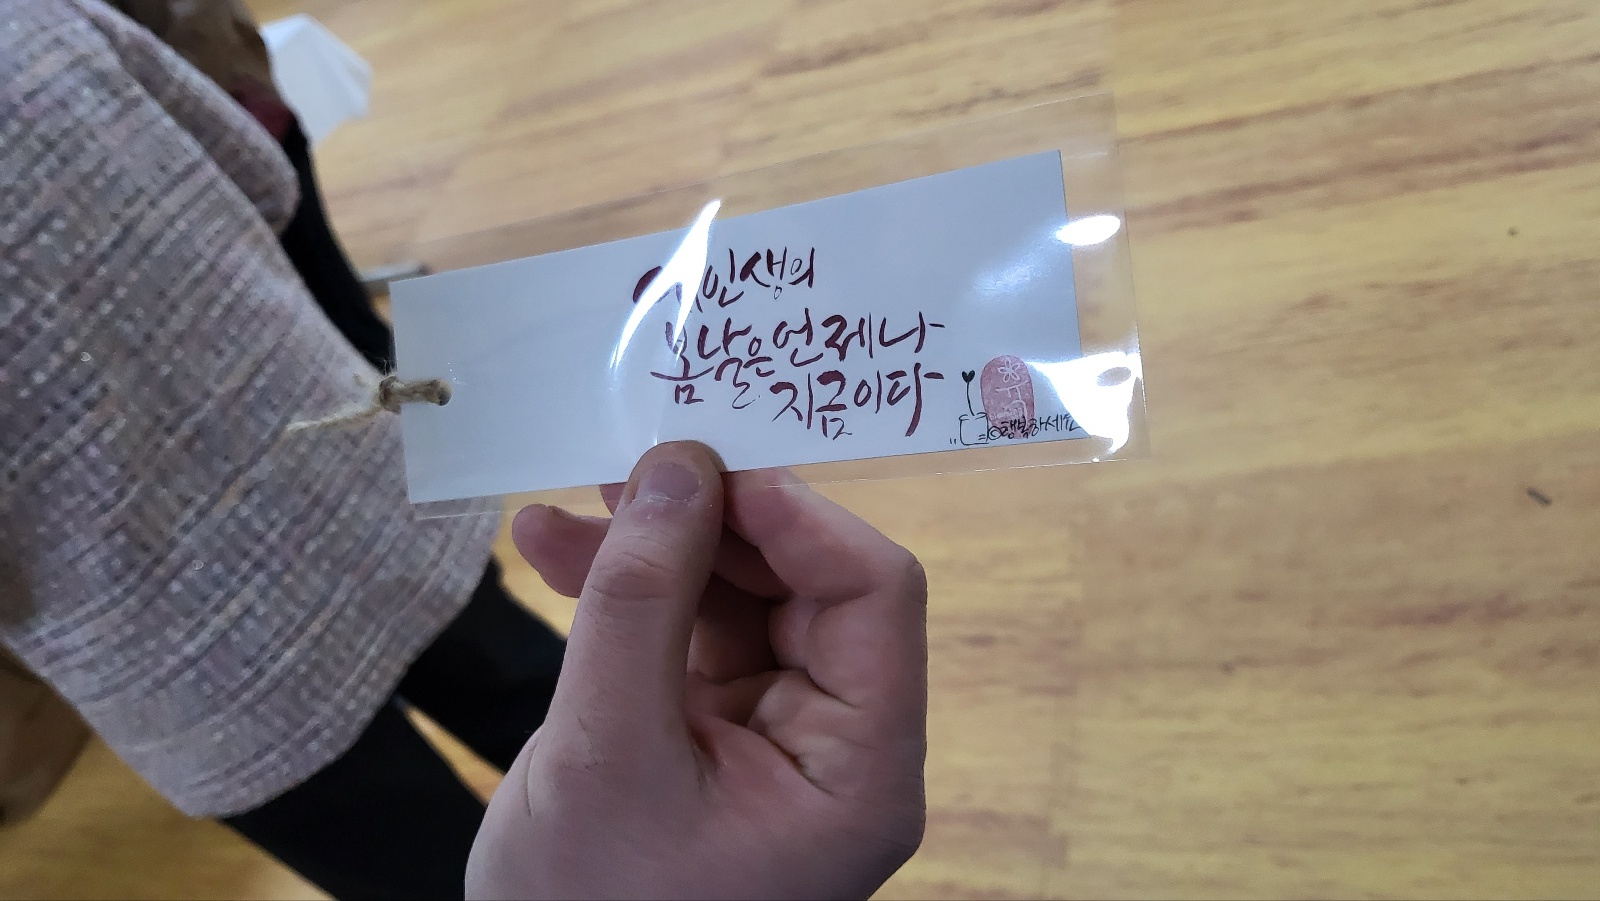 인생의
봄날은 언제나
지금이다
행복하세요